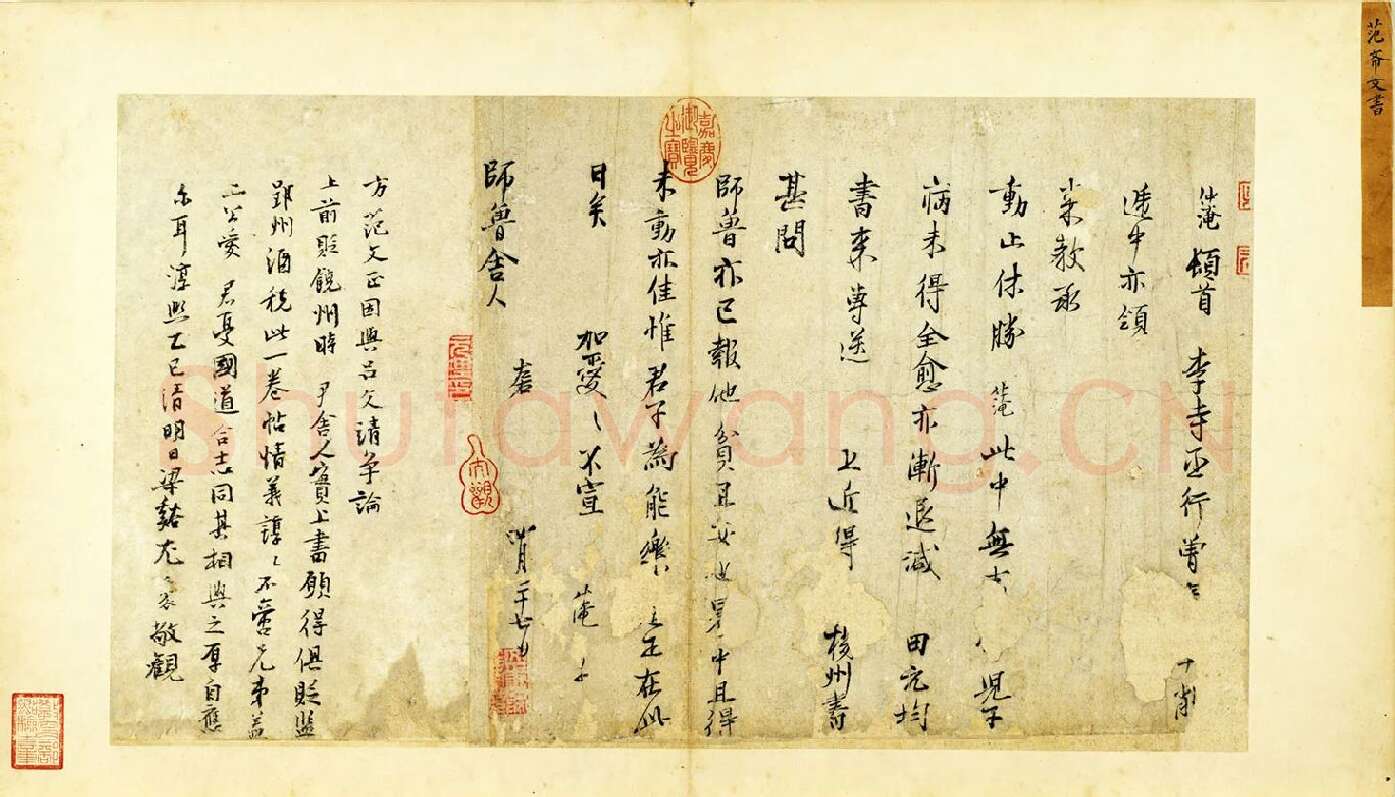 范 文書
仲淹 頓首 李寺丞行曾
遞中亦領
来教承
動止休勝 仲淹此中無 兒子
病未得全愈亦漸退減 田元均
書来專送 上近得 揆州書
甚問
師魯亦已報他貧且安也 中且得
未動亦佳惟君子為能樂 正在此
日矣 加愛〻不宣 仲淹
師魯舍人 四月二十七日
方范文正因與呂文靖争論
上前貶饒州時尹舍人實上書願得俱貶監
郢州酒税此一卷帖情義諄〻不啻兄弟盖
二公愛君憂國道合志同其相與之厚自應
尓耳淳熙乙巳清明日梁谿尤袤敬觀
嘉慶御覽之寶
Shufawang.CN